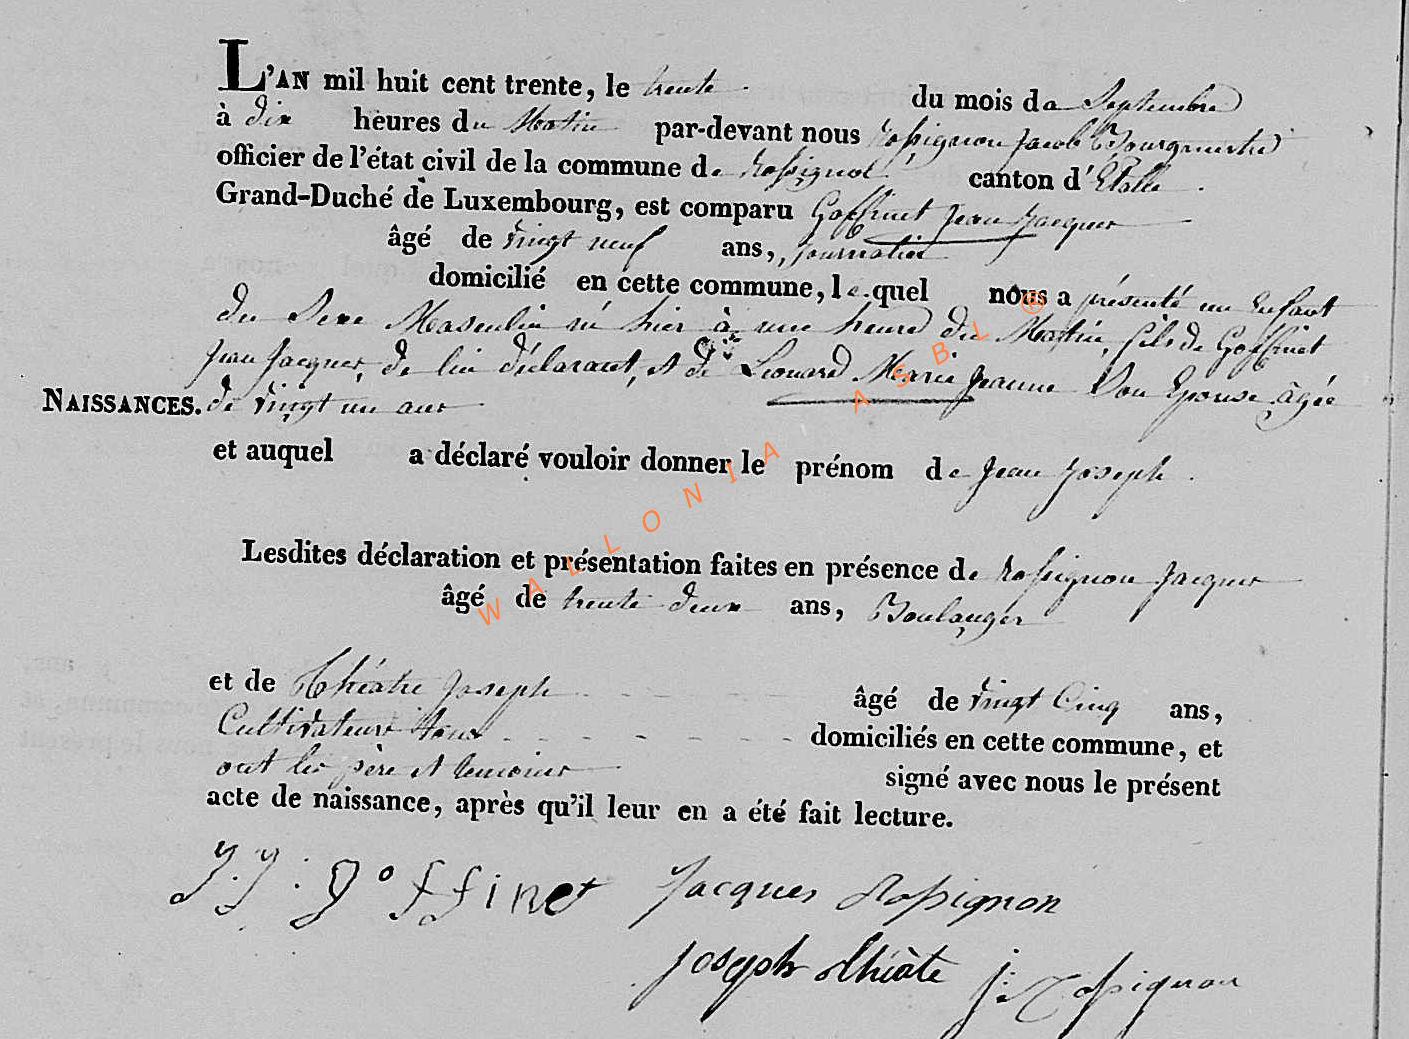 L'AN mil huit cent trente, le trente du mois de Septembre
à dix heures du Matin par-devant nous Rossignon Jacob Bourgmestre
officier de l'état civil de la commune de Rossignol canton d'Etalle
Grand-Duché de Luxembourg, est comparu Goffinet Jean Jacques
âgé de vingt neuf ans, journalier
domicilié en cette commune, lequel nous a présenté un Enfant
du Sexe Masculin né hier à une heure du Matin, fils de Goffinet
Jean Jacques, de lui déclarant, et de Leonard Marie Jeanne Son Epouse âgée
NAISSANCES. de vingt un ans
et auquel a déclaré vouloir donner le prénom de Jean Joseph
Lesdites déclaration et présentation faites en présence de Rossignon Jacques
âgé de trente deux ans, Boulanger
et de Thiéatre Joseph âgé de vingt Cinq ans,
Cultivateur tous domiciliés en cette commune, et
ont les père et temoins signé avec nous le présent
acte de naissance, après qu'il leur en a été fait lecture.
J. J. goffinet Jacques Rossignon
Joseph thiâte J: Rossignon
WALLONIA ASBL ®